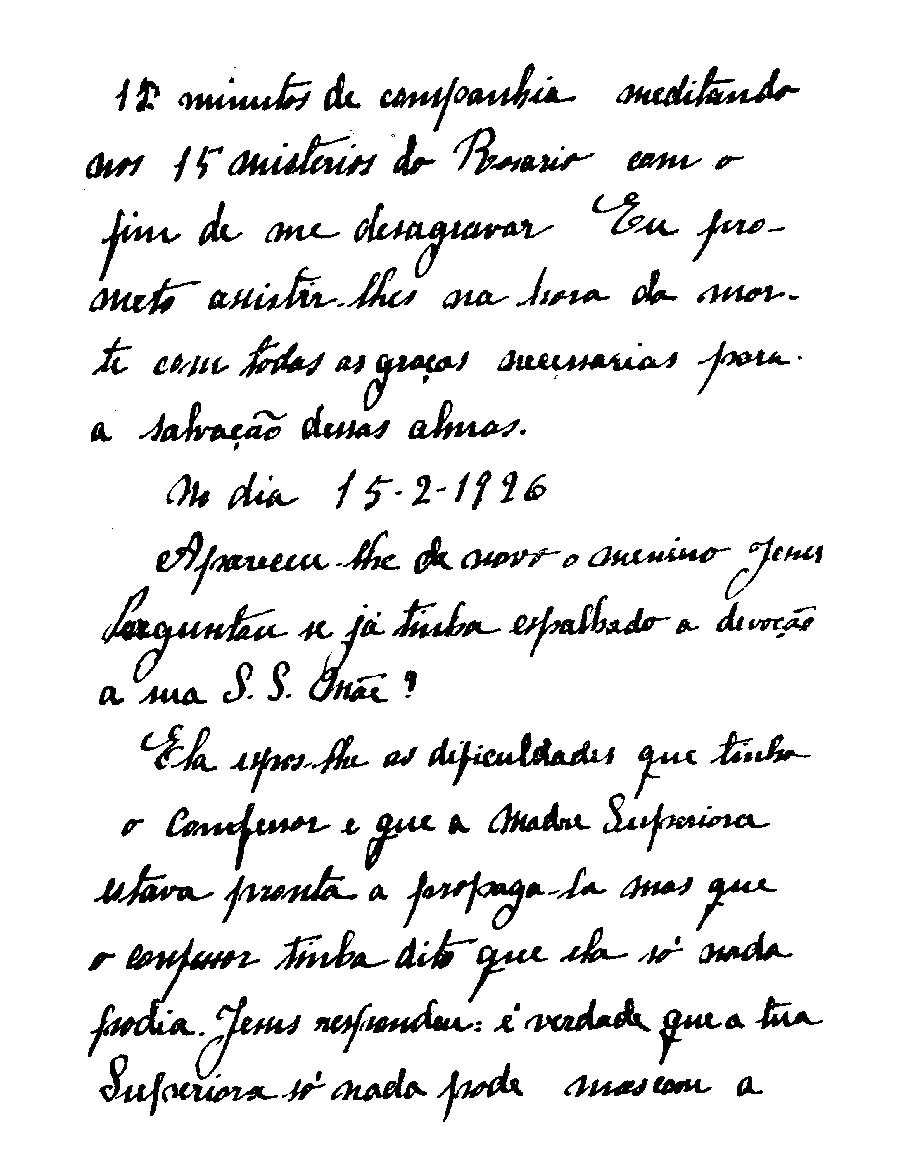 15 minutos de companhia meditando
nos 15 misterios do Rosario com o
fim de me desagravar Eu pro-
meto assistir-lhes na hora da mor-
te com todas as graças necessarias para
a salvação dessas almas.
No dia 15-2-1926
Apareceu-lhe de novo o menino Jesus
Perguntou se já tinha espalhado a devoção
a sua S. S. Mãe?
Ela espos-lhe as dificuldades que tinha
o Comfessor e que a Madre Superiora
estava pronta a propaga-la mas que
o confessor tinha dito que ela só nada
podia. Jesus respondeu: é verdade que a tua
Superiora só nada pode mas com a